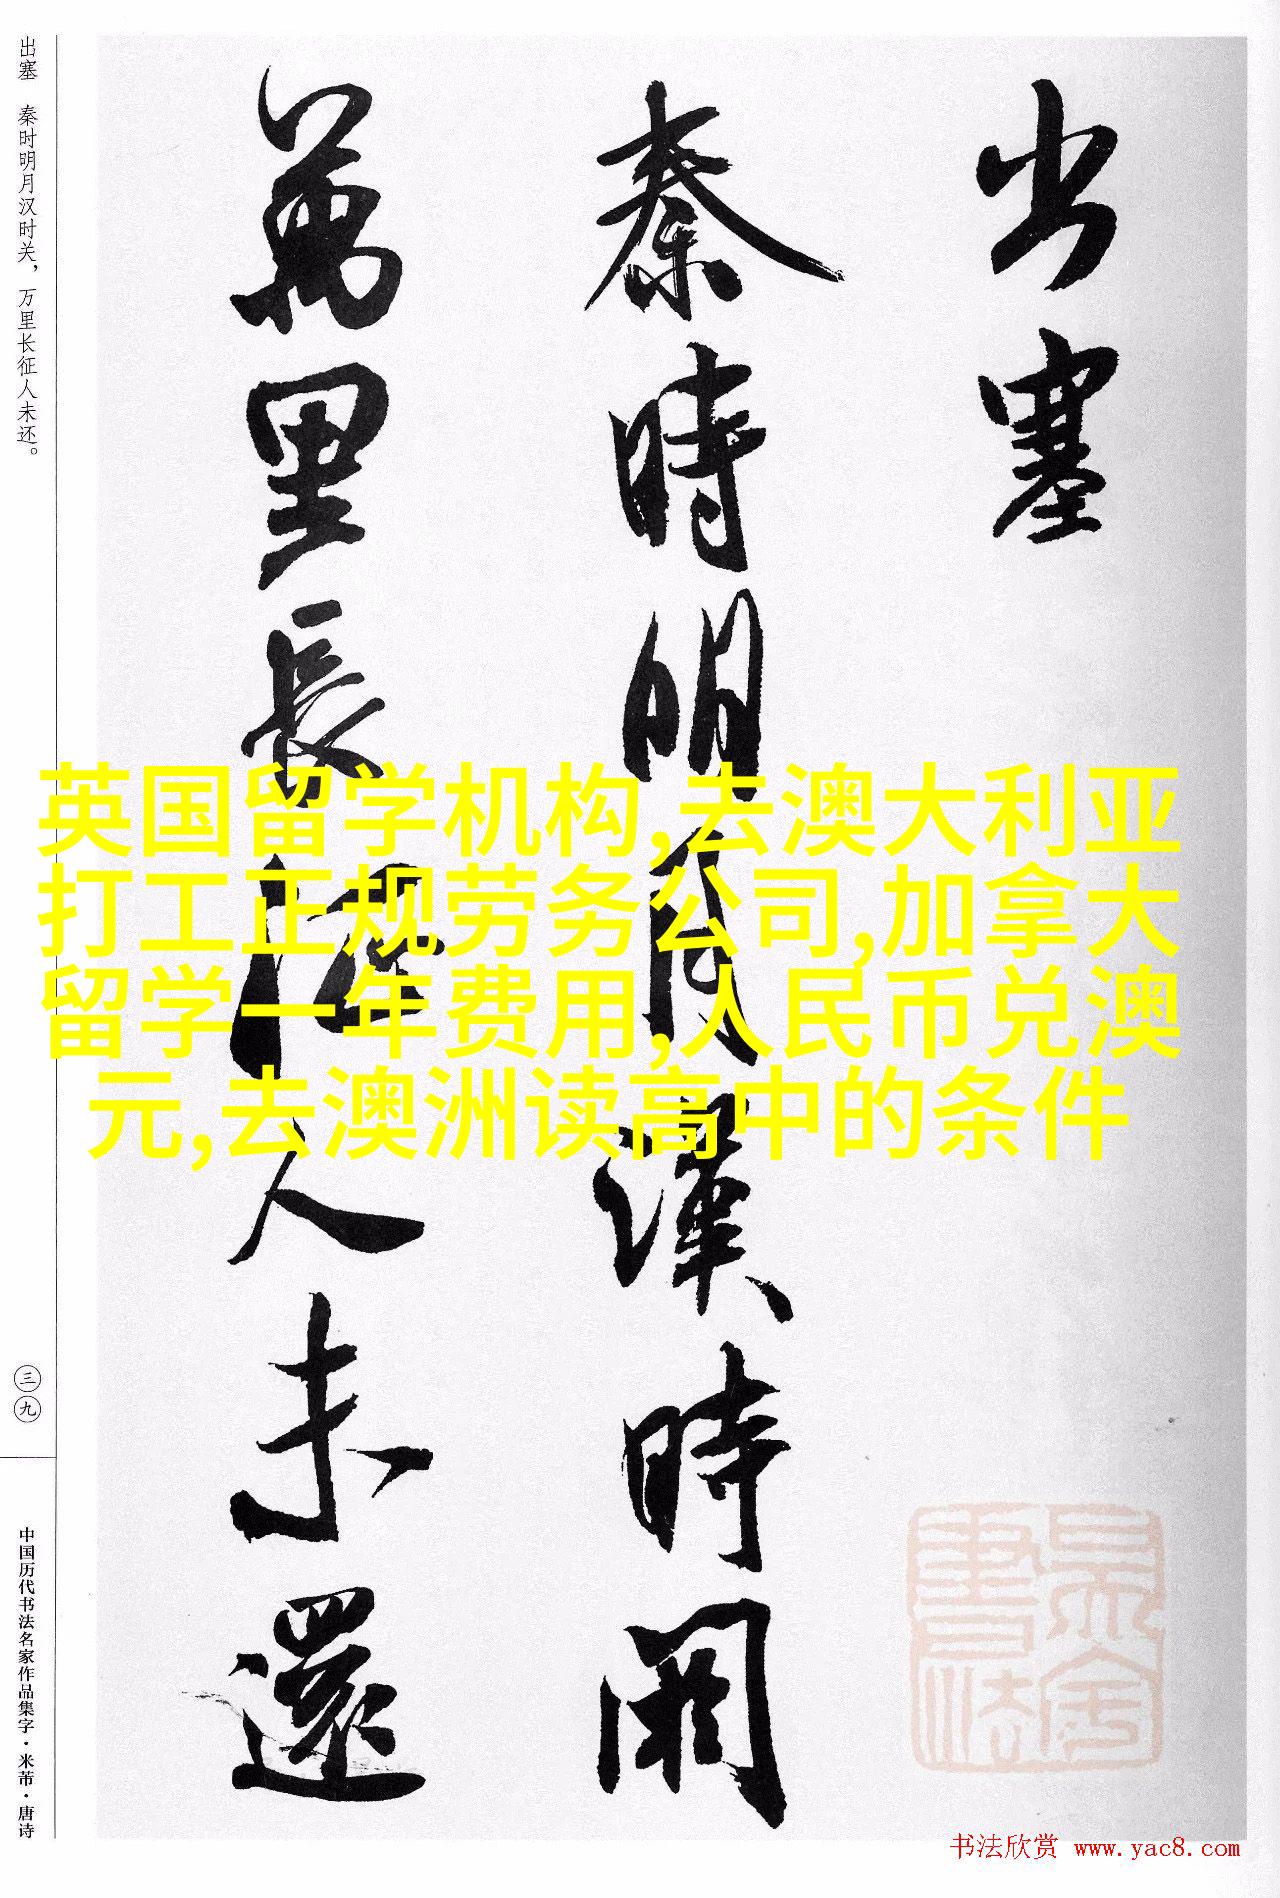 出塞
秦時明月漢時関
萬里長征人未還
出塞 秦时明月汉时关，万里长征人未还。
三九
中国历代书法名家作品集字·米芾·唐诗
英国留学机构,去澳大利亚
打工正规劳务公司,加拿大
留学一年费用,人民币兑澳
元,去澳洲读高中的条件
书法欣赏 www.yac8.com